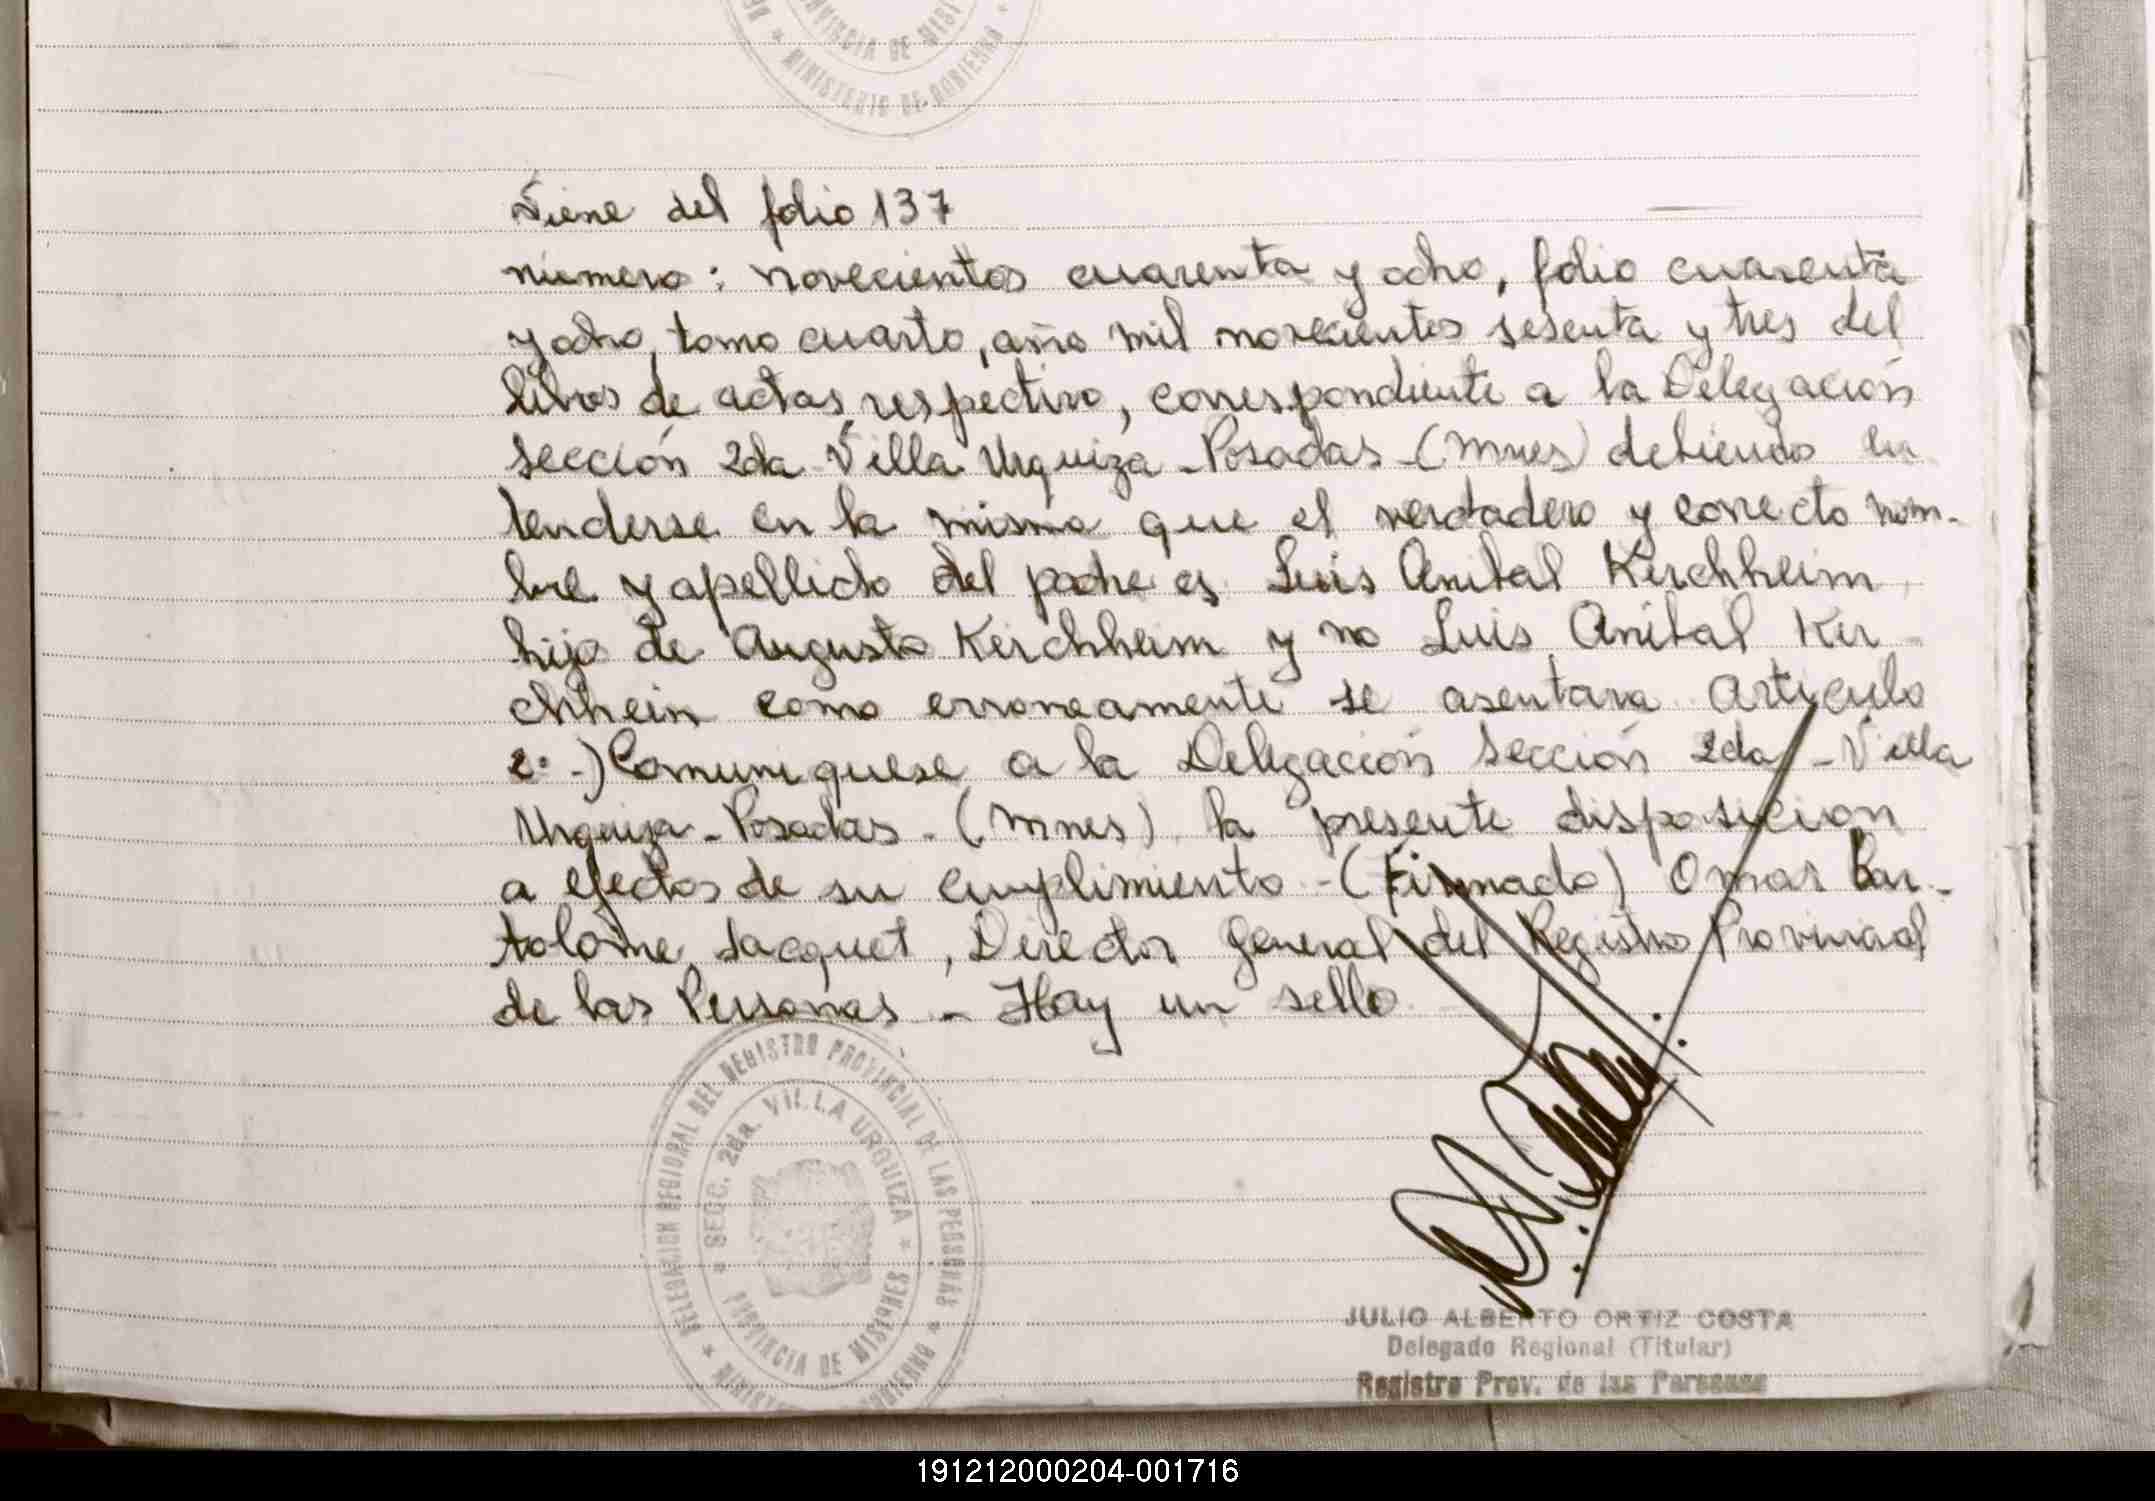 PROVINCIA DE MISI
* MINISTERIO DE GOBIERNO *
Viene del folio 137
número: novecientos cuarenta y ocho, folio cuarenta
y ocho, tomo cuarto, año mil novecientos sesenta y tres del
libros de actas respectivo, correspondiente a la Delegación
sección 2da Villa Urquiza - Posadas - (Mnes) debiendo en
tenderse en la misma que el verdadero y correcto nom-
bre y apellido del padre es Luis Anibal Kirchheim
hijo de Augusto Kirchheim y no Luis Anibal Kir
chhein como erroneamente se asentara Articulo
2º -) Comuniquese a la Delegación Sección 2da - Villa
Urquiza - Posadas - (Mnes) la presente disposición
a efectos de su cumplimiento - (Firmado) Omar Bar-
tolome Jacquet, Director General del Registro Provincial
de las Personas - Hay un sello
DELEGACION REGIONAL DEL REGISTRO PROVINCIAL DE LAS PERSONAS *
* SECC. 2da. VILLA URQUIZA *
PROVINCIA DE MISIONES
JULIO ALBERTO ORTIZ COSTA
Delegado Regional (Titular)
Registro Prov. de las Personas
191212000204-001716